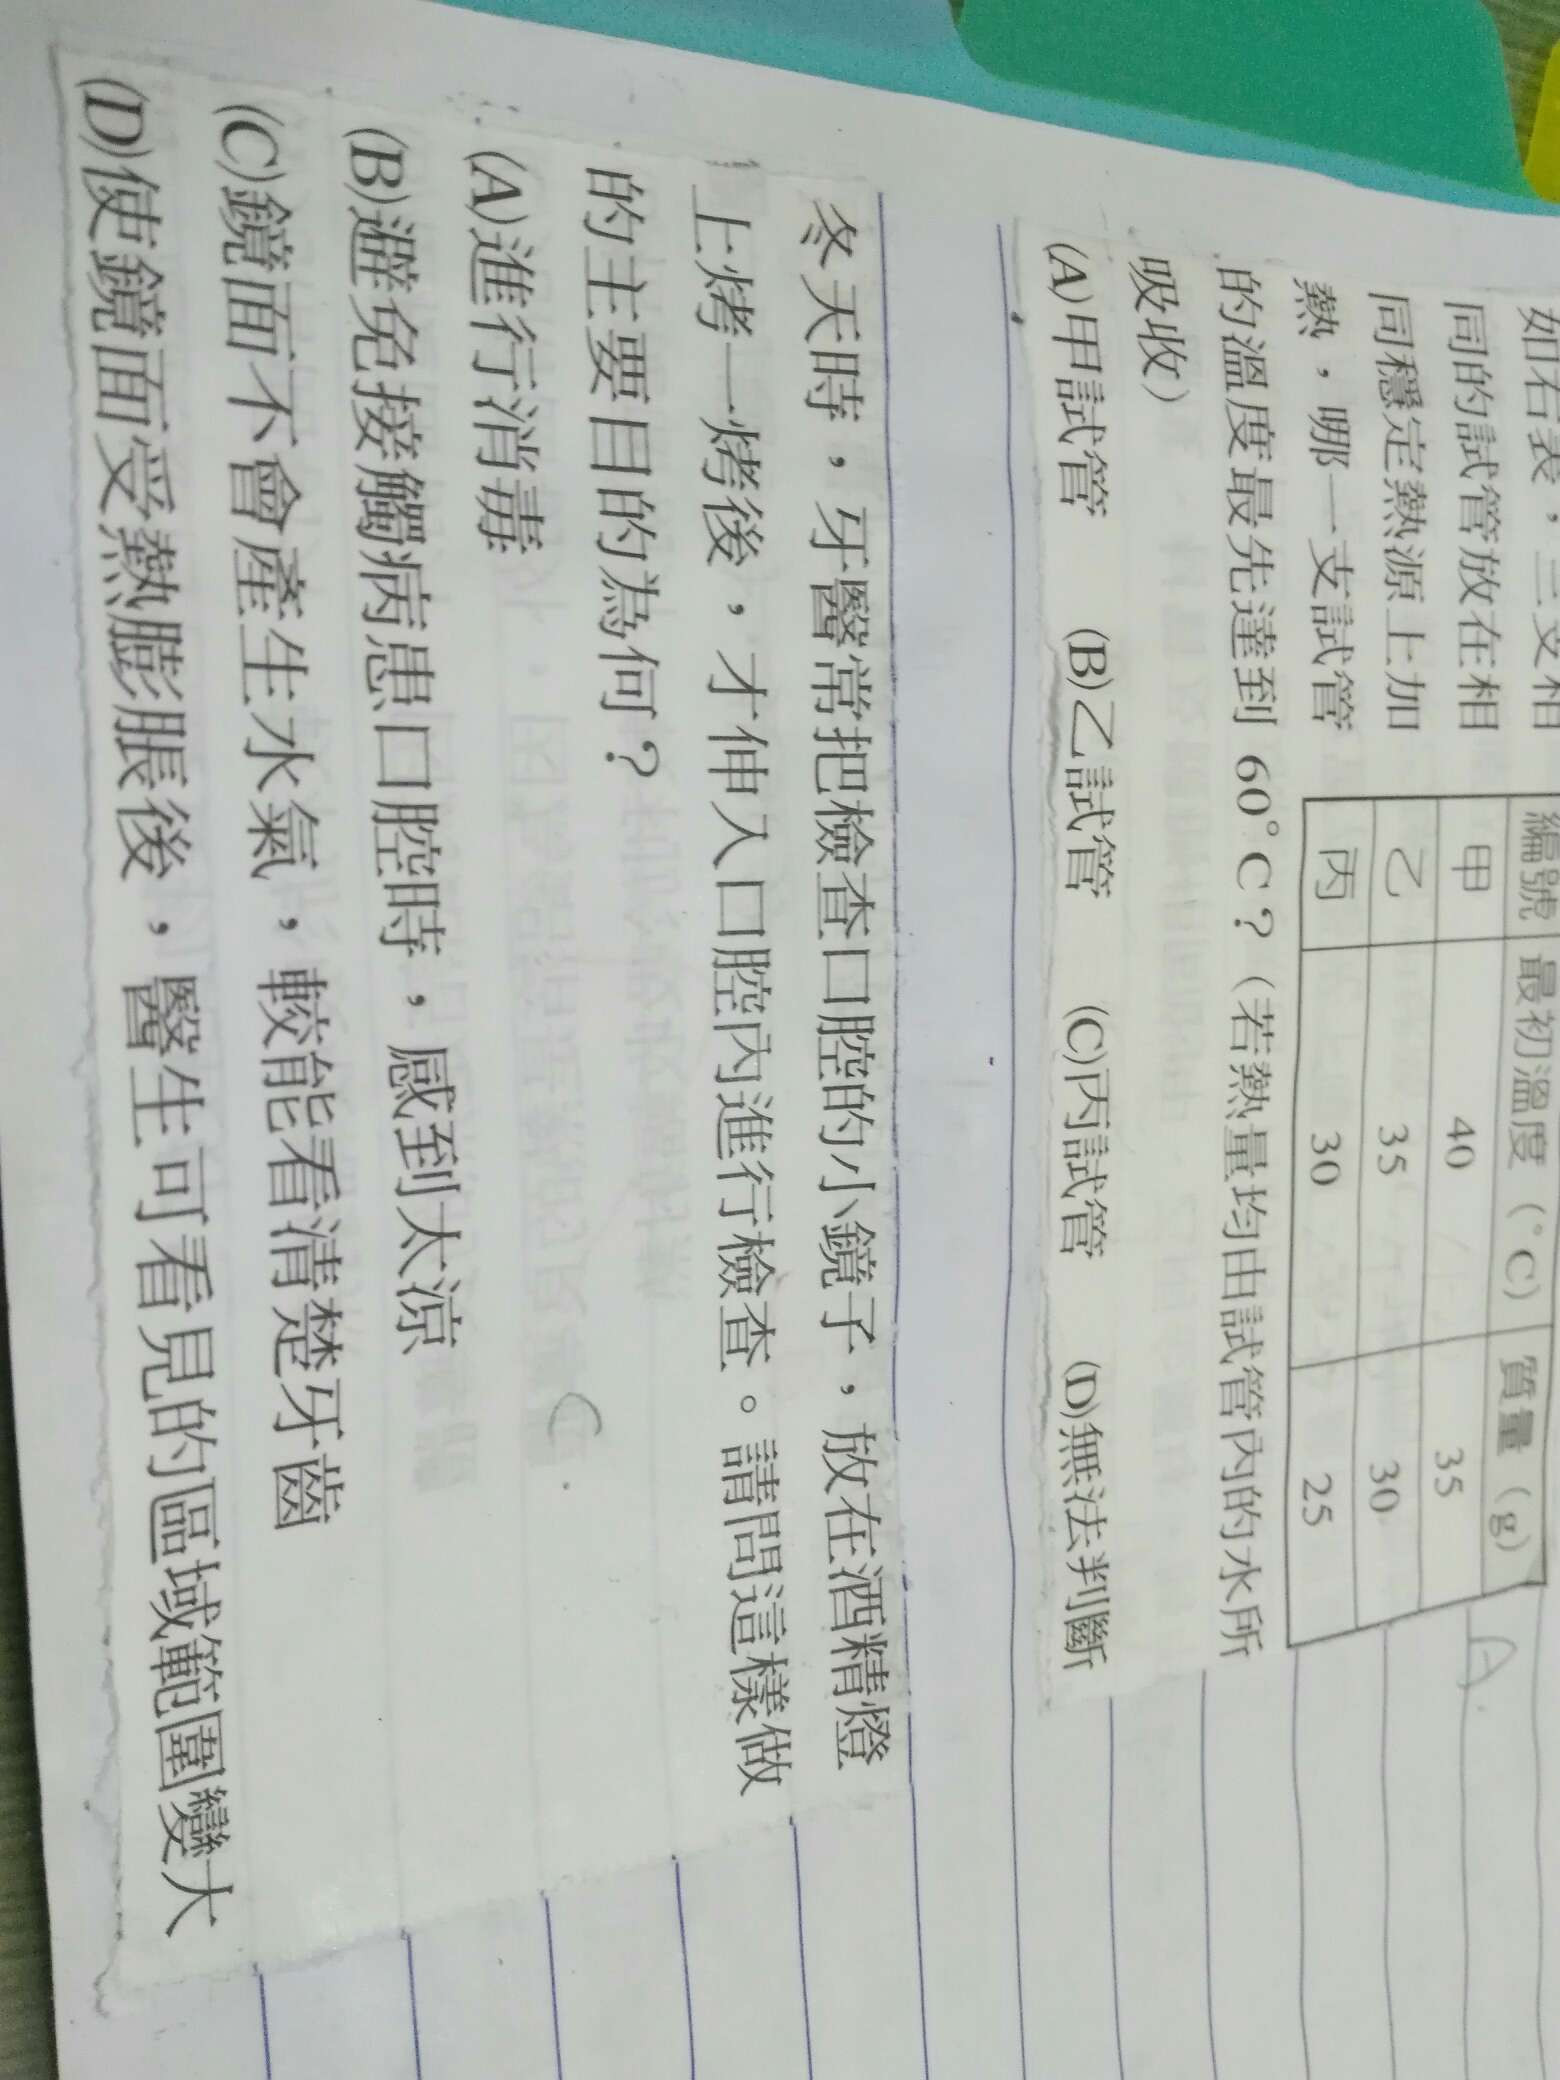 如右表，三支相
同的試管放在相
同穩定熱源上加
熱，哪一支試管
的溫度最先達到 60°C？（若熱量均由試管內的水所
吸收）
編號 最初溫度（°C） 質量（g）
甲 40 35
乙 35 30
丙 30 25
A.
(A)甲試管 (B)乙試管 (C)丙試管 (D)無法判斷
冬天時，牙醫常把檢查口腔的小鏡子，放在酒精燈
上烤一烤後，才伸入口腔內進行檢查。請問這樣做
的主要目的為何？
C.
(A)進行消毒
(B)避免接觸病患口腔時，感到太涼
(C)鏡面不會產生水氣，較能看清楚牙齒
(D)使鏡面受熱膨脹後，醫生可看見的區域範圍變大